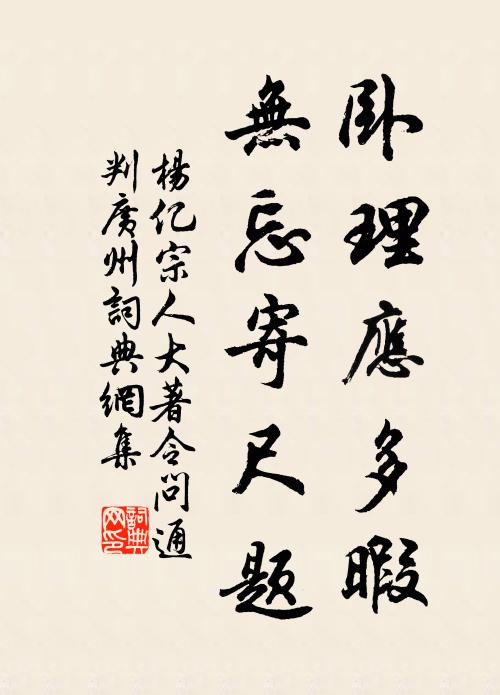 卧理應多暇
無忘寄尺题
楊亿宗人大著令問通
判廣州詞典網集
詞典网印